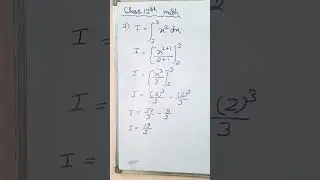 Class 12th math
3) I = ∫₂³ x² dx
I = [x²⁺¹/2+1]₂³
I = [x³/3]₂³
I = (3)³/3 - (2)³/3
I = 27/3 - 8/3
I = 19/3